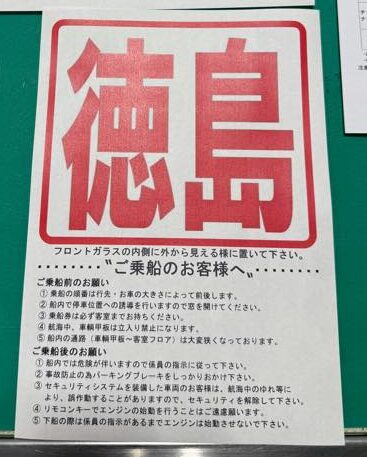 徳島
フロントガラスの内側に外から見える様に置いて下さい。
‥‥‥‥〝ご乗船のお客様へ〟‥‥‥‥
ご乗船前のお願い
① 乗船の順番は行先・お車の大きさによって前後します。
② 船内で停車位置への誘導を行いますので窓を開けてください。
③ 乗船券は必ず客室までお持ちください。
④ 航海中、車輌甲板は立入り禁止になります。
⑤ 船内の通路（車輌甲板～客室フロア）は大変狭くなっております。
ご乗船後のお願い
① 船内では危険が伴いますので係員の指示に従って下さい。
② 事故防止の為パーキングブレーキをしっかりおかけ下さい。
③ セキュリティシステムを装備した車両のお客様は、航海中のゆれ等に
より、誤作動することがありますので、セキュリティを解除して下さい。
④ リモコンキーでエンジンの始動を行うことはご遠慮願います。
⑤ 下船の際は係員の指示があるまでエンジンは始動させないで下さい。